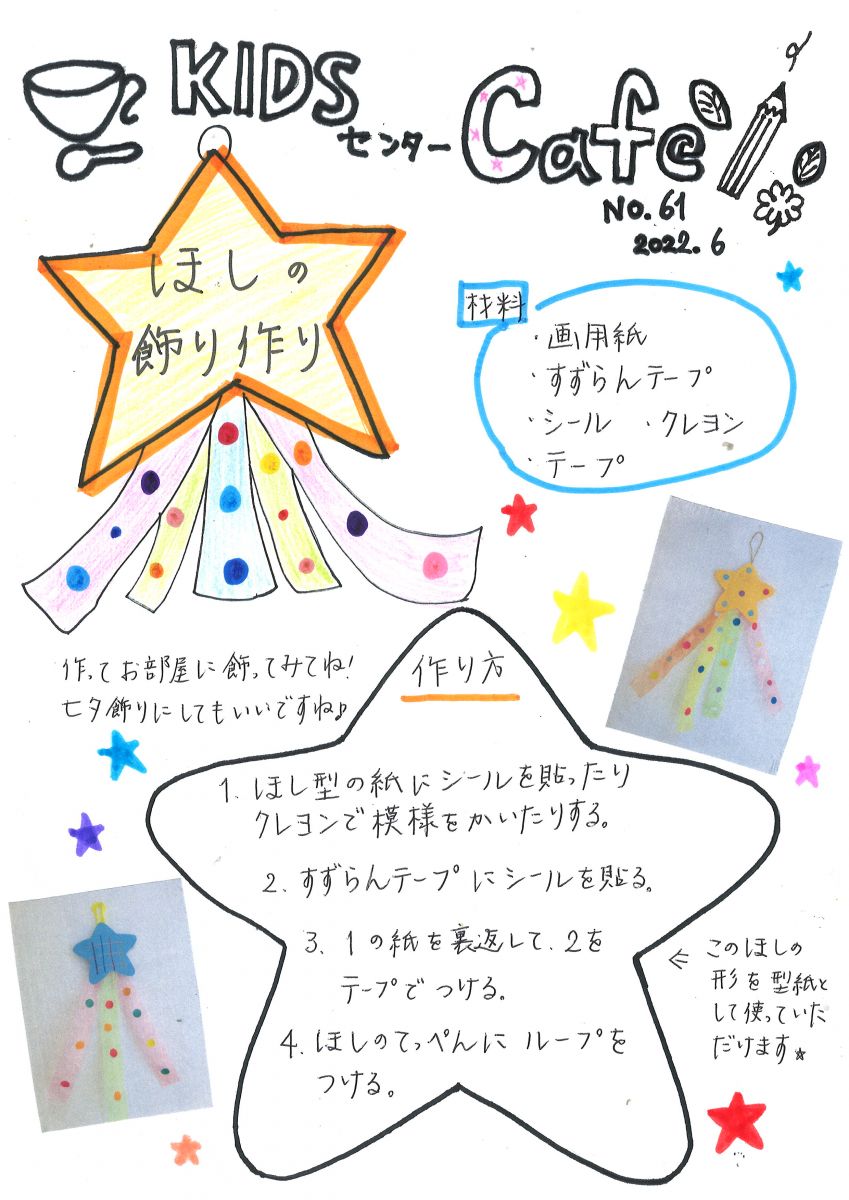 KIDS
センター Cafe
No.61
2022.6
ほしの
飾り作り
材料
・画用紙
・すずらんテープ
・シール ・クレヨン
・テープ
作ってお部屋に飾ってみてね!
七夕飾りにしてもいいですね♪
作り方
1. ほし型の紙にシールを貼ったり
クレヨンで模様をかいたりする。
2. すずらんテープにシールを貼る。
3. 1の紙を裏返して、2を
テープでつける。
4. ほしのてっぺんにループを
つける。
このほしの
形を型紙と
して使っていた
だけます☆